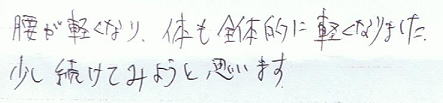 腰が軽くなり、体も全体的に軽くなりました。
少し続けてみようと思います